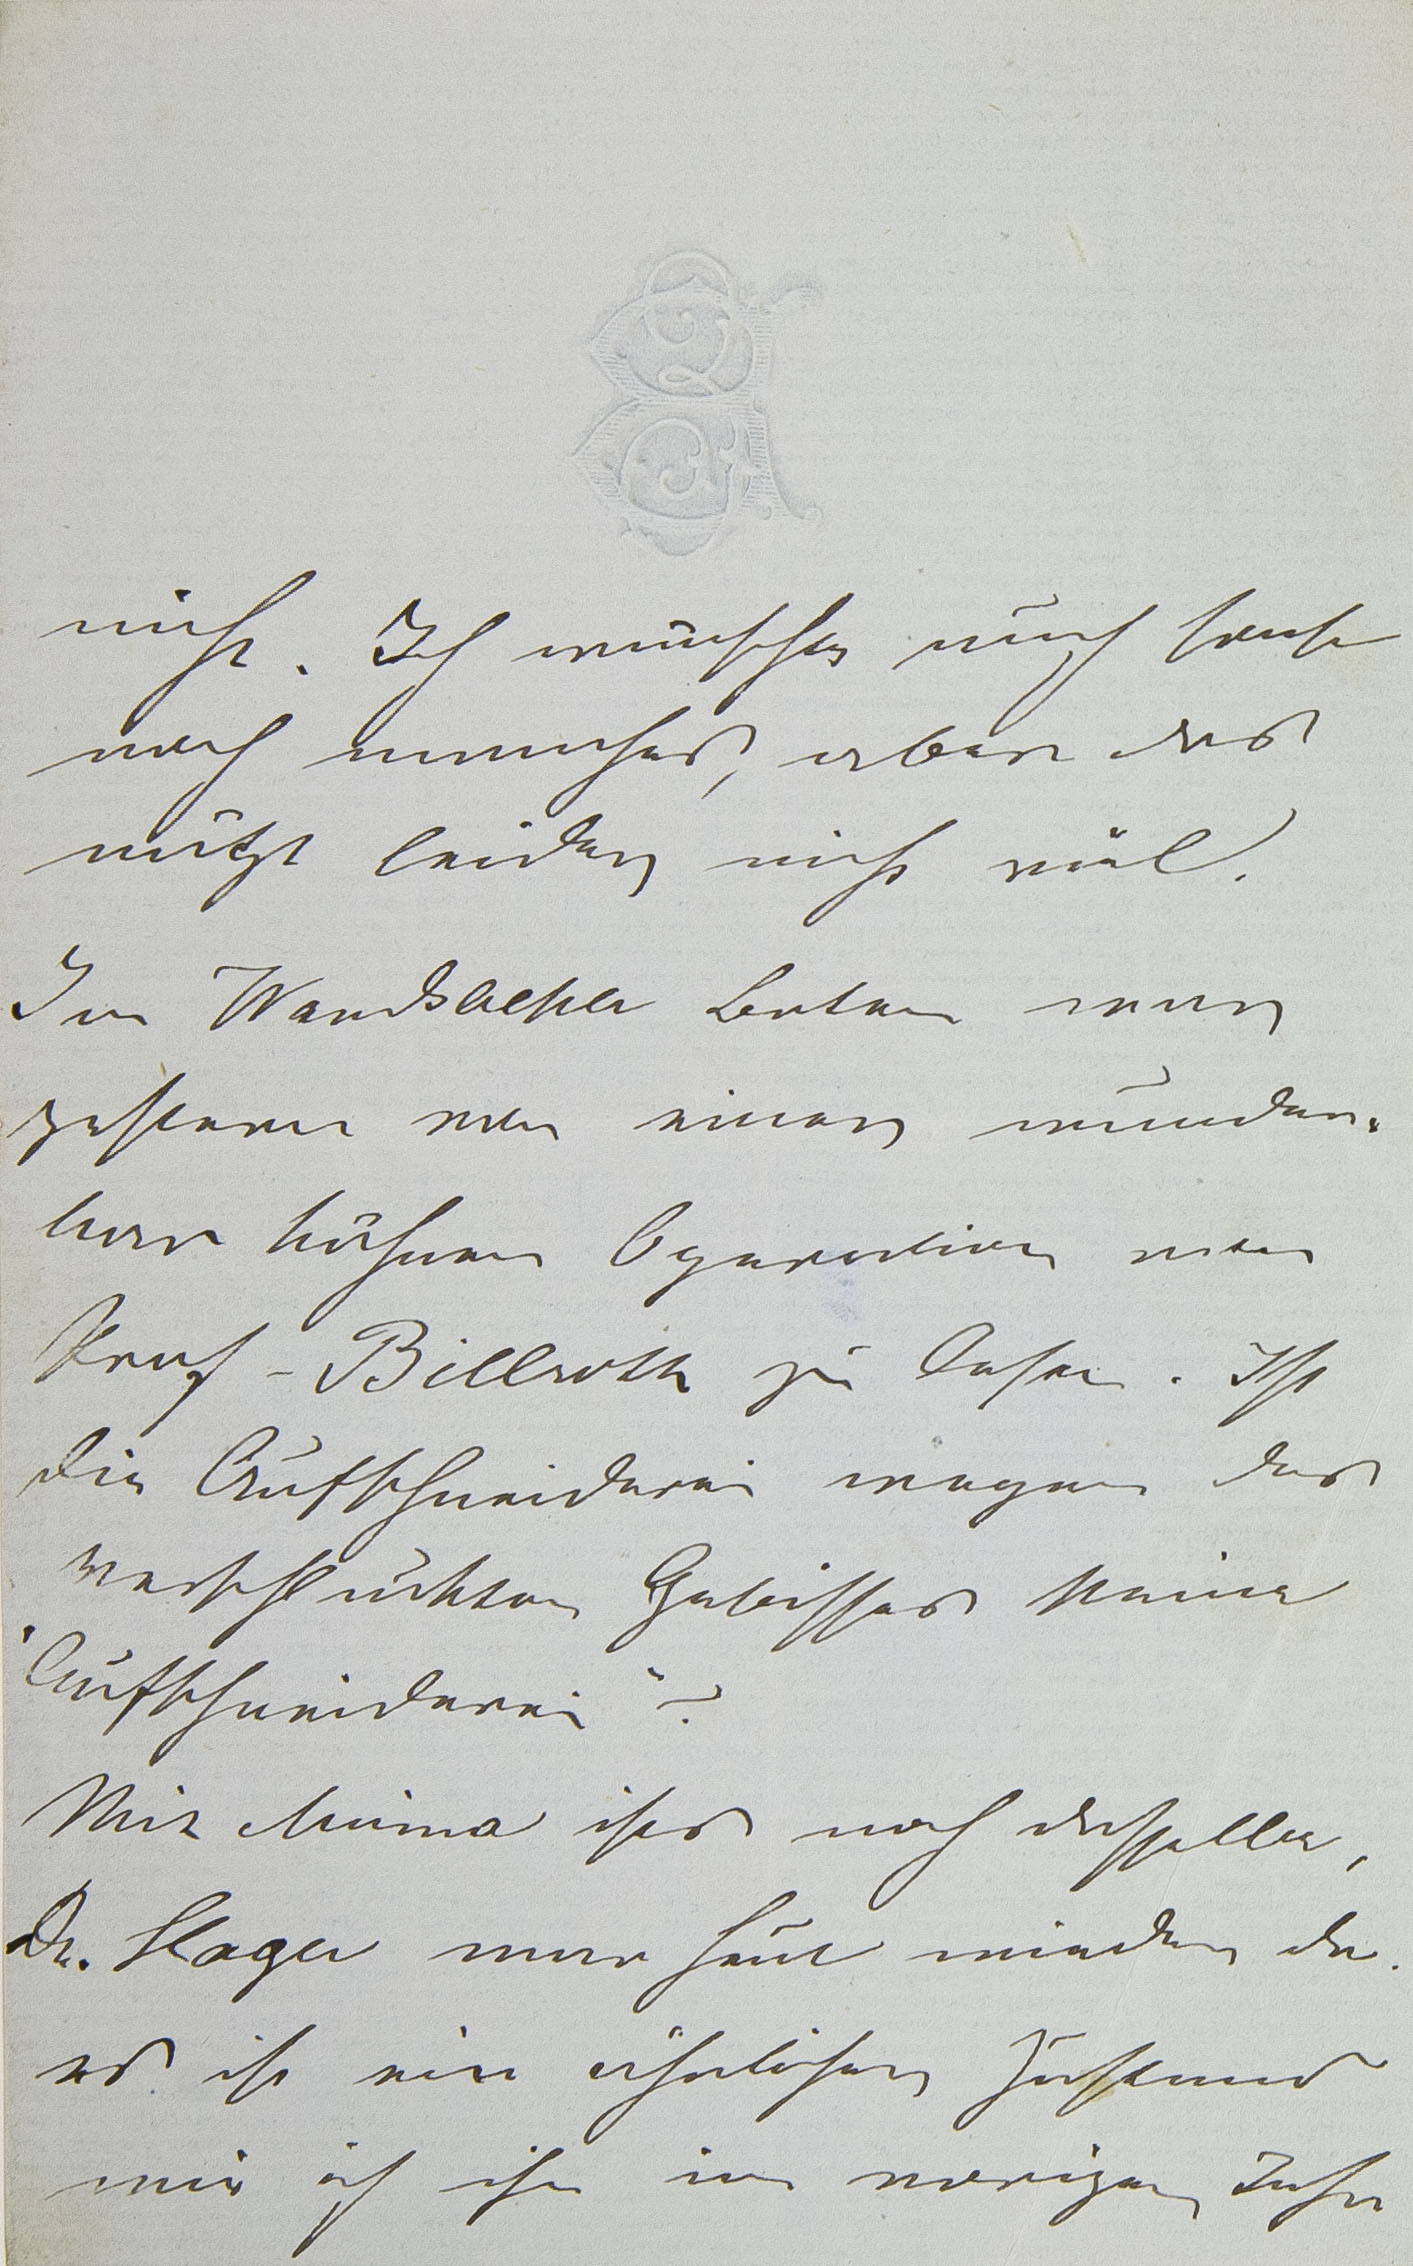 nicht. Ich wünschte mich heute
noch manches, aber das
nützt leider nicht viel.
Im Wandsbecker Boten war
gestern von einer wunder-
bar kühnen Operation von
Prof. Billroth zu lesen. Ist
die Aufschneiderei wegen des
verschluckten Gebisses keine
"Aufschneiderei"?
Mit Mima ists noch dasselbe,
Dr. Hager war heut wieder da.
es ist ein ähnlicher Zustand
wie ich ihn im vorigen Jahr